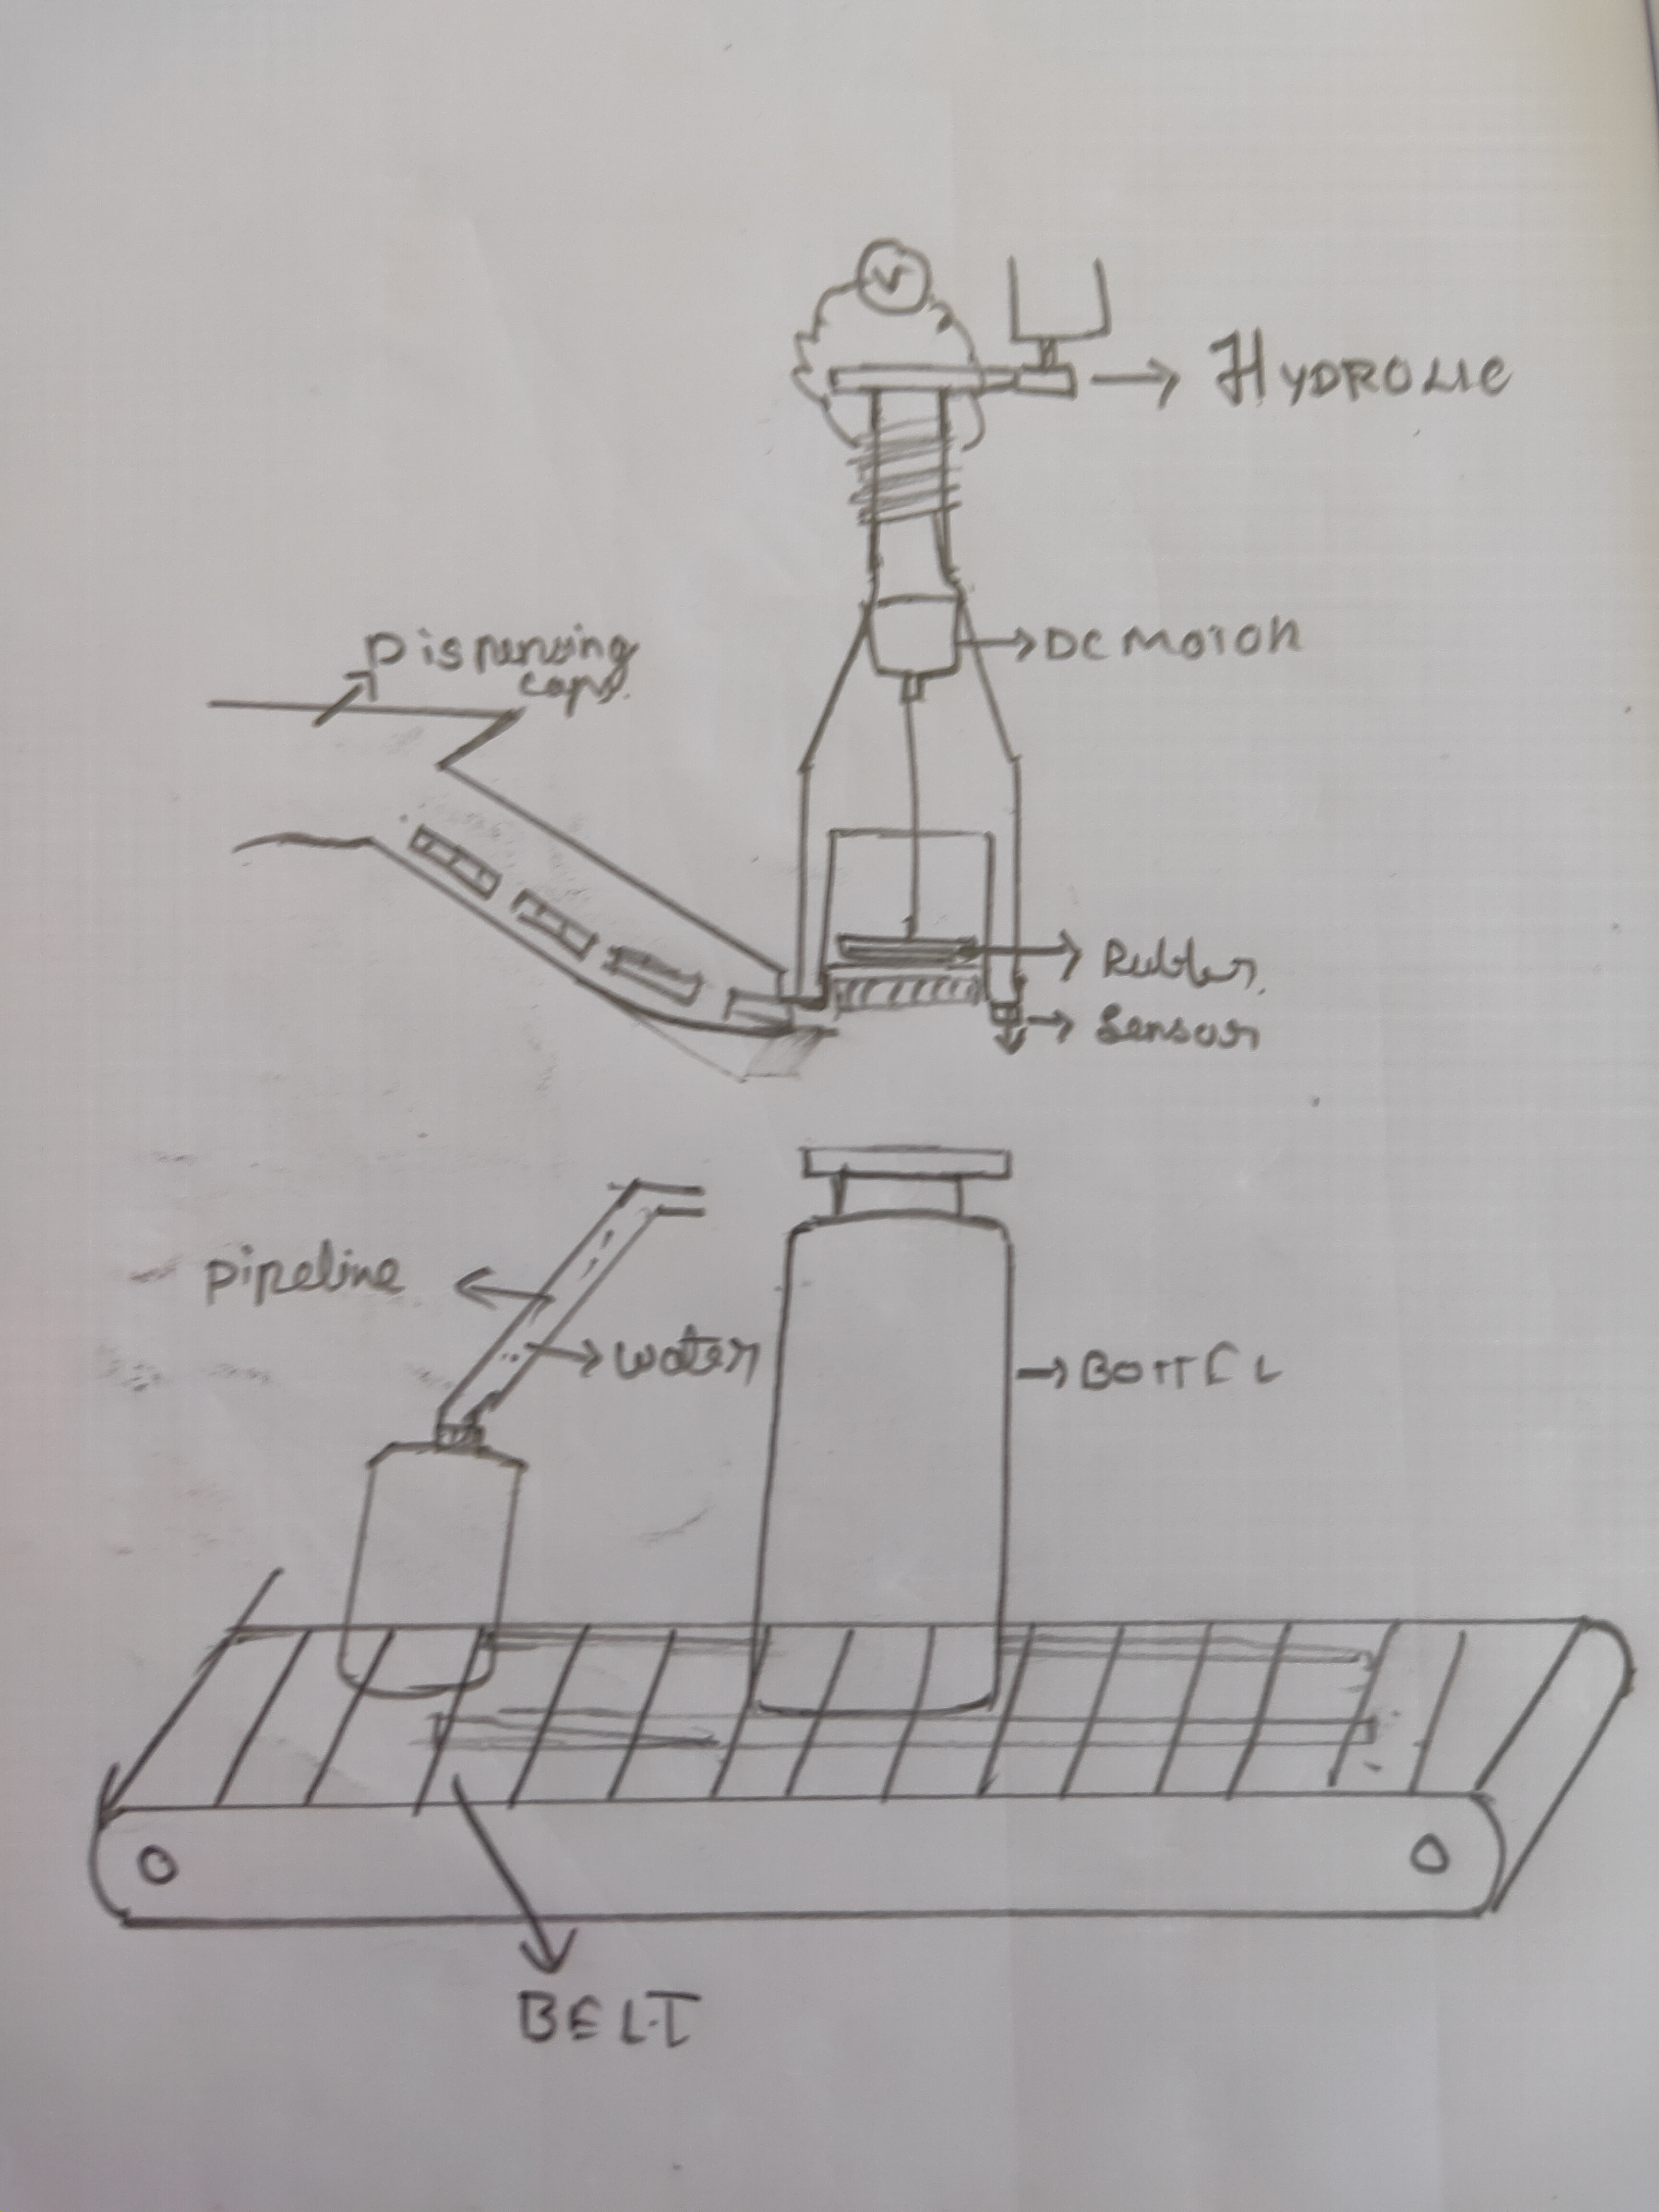 V
HYDROLIC
DC MOTOR
Dispensing
caps.
Rubber.
Sensor
pipeline
water
BOTTEL
BELT